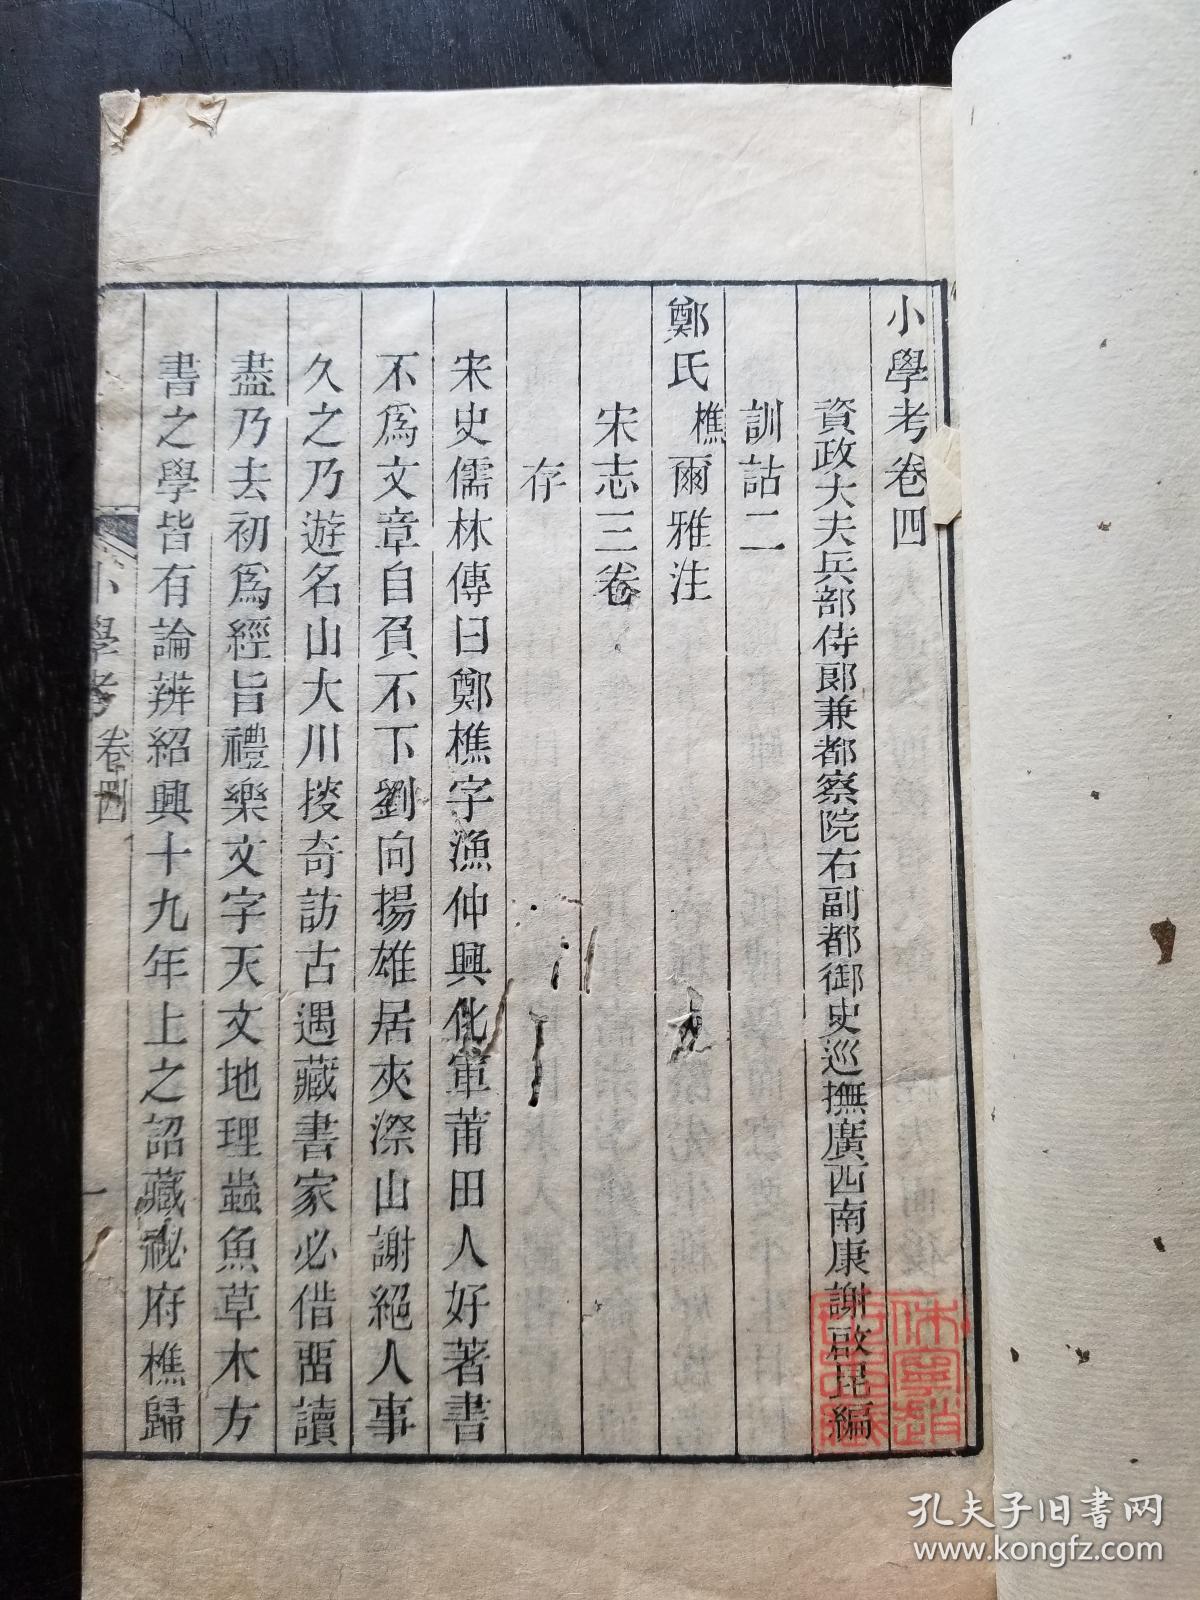 小學考卷四
資政大夫兵部侍郎兼都察院右副都御史巡撫廣西南康謝啟昆編
訓詁二
鄭氏樵爾雅注
宋志三卷
存
宋史儒林傳曰鄭樵字漁仲興化軍莆田人好著書
不爲文章自負不下劉向揚雄居夾漈山謝絕人事
久之乃遊名山大川搜奇訪古遇藏書家必借畱讀
盡乃去初爲經旨禮樂文字天文地理蟲魚草木方
書之學皆有論辨紹興十九年上之詔藏祕府樵歸
小學考 卷四
一
孔夫子旧书网
www.kongfz.com